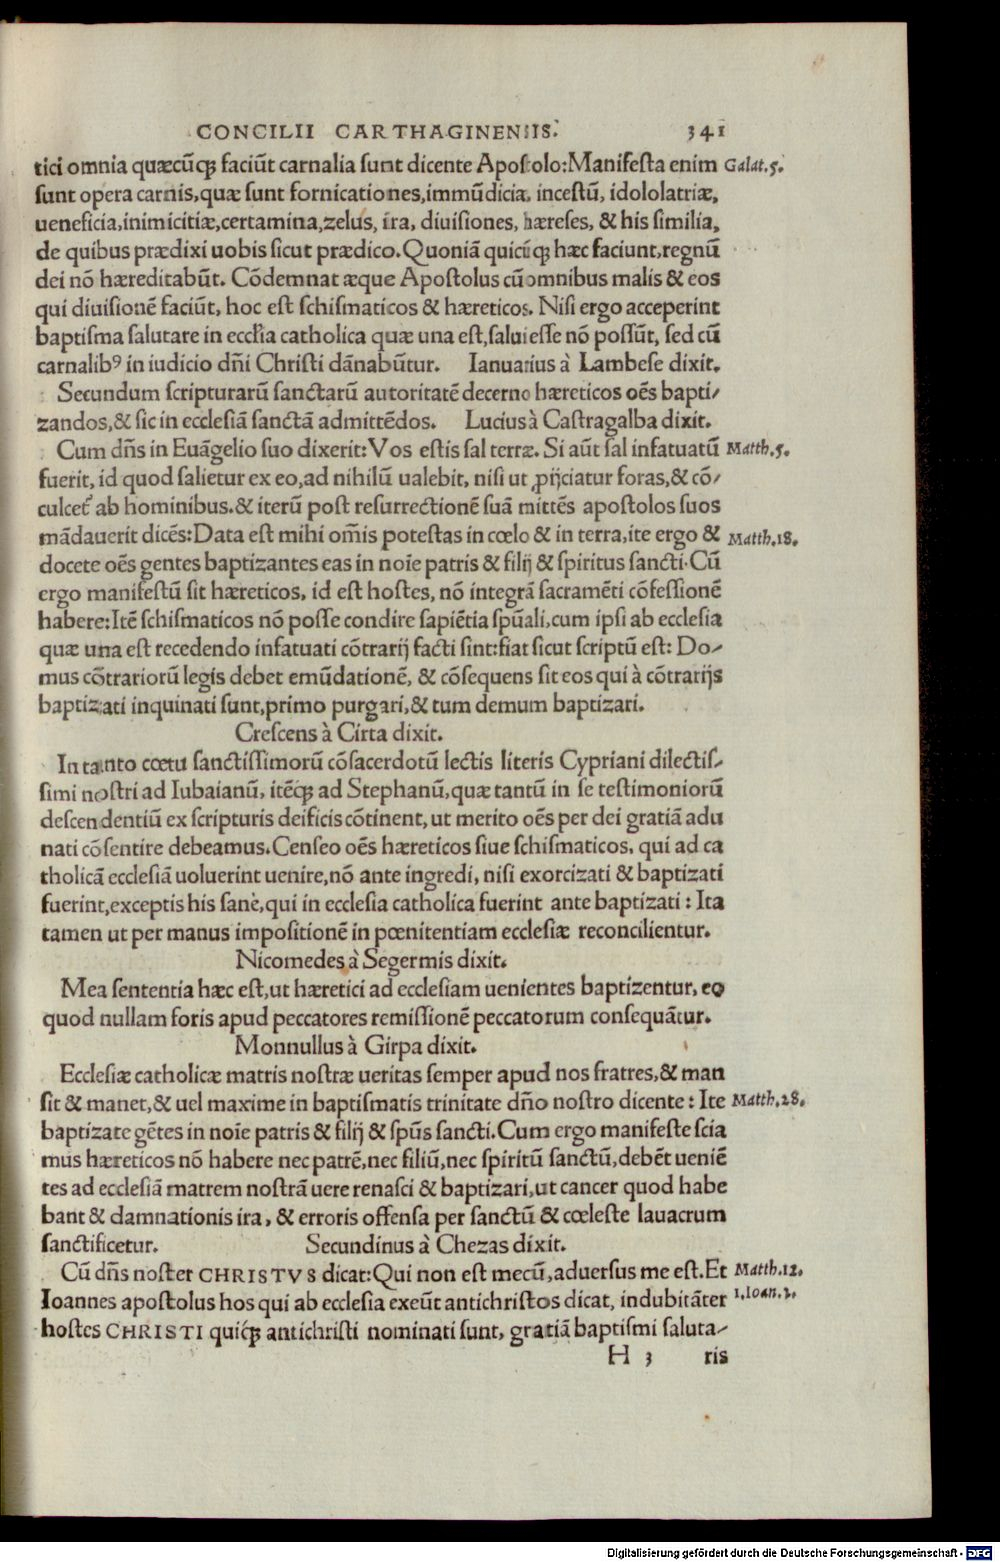 CONCILII CARTHAGINENSIS. 341
tici omnia quæcũq; faciũt carnalia sunt dicente Apostolo: Manifesta enim Galat.5.
sunt opera carnis, quæ sunt fornicationes, immũdicia, incestũ, idololatriæ,
ueneficia, inimicitiæ, certamina, zelus, ira, diuisiones, hæreses, & his similia,
de quibus prædixi uobis sicut prædico. Quoniã quicũq; hæc faciunt, regnũ
dei nõ hæreditabũt. Cõdemnat æque Apostolus cũ omnibus malis & eos
qui diuisionẽ faciũt, hoc est schismaticos & hæreticos. Nisi ergo acceperint
baptisma salutare in ecclīa catholica quæ una est, salui esse nõ possũt, sed cũ
carnalibꝰ in iudicio dñi Christi dãnabũtur. Ianuarius à Lambese dixit.
Secundum scripturarũ sanctarũ autoritatẽ decerno hæreticos oẽs bapti/
zandos, & sic in ecclesiã sanctã admittẽdos. Lucius à Castragalba dixit.
Cum dñs in Euãgelio suo dixerit: Vos estis sal terræ. Si aũt sal infatuatũ Matth.5.
fuerit, id quod salietur ex eo, ad nihilũ ualebit, nisi ut ꝓijciatur foras, & cõ/
culcet᷑ ab hominibus. & iterũ post resurrectionẽ suã mittẽs apostolos suos
mãdauerit dicẽs: Data est mihi om̃is potestas in cœlo & in terra, ite ergo & Matth.18.
docete oẽs gentes baptizantes eas in noĩe patris & filij & spiritus sancti. Cũ
ergo manifestũ sit hæreticos, id est hostes, nõ integrã sacramẽti cõfessionẽ
habere: Itẽ schismaticos nõ posse condire sapiẽtia spũali, cum ipsi ab ecclesia
quæ una est recedendo infatuati cõtrarij facti sint: fiat sicut scriptũ est: Do/
mus cõtrariorũ legis debet emũdationẽ, & cõsequens sit eos qui à cõtrarijs
baptizati inquinati sunt, primo purgari, & tum demum baptizari.
Crescens à Cirta dixit.
In tanto cœtu sanctissimorũ cõsacerdotũ lectis literis Cypriani dilectis/
simi nostri ad Iubaianũ, itẽq; ad Stephanũ, quæ tantũ in se testimoniorũ
descendentiũ ex scripturis deificis cõtinent, ut merito oẽs per dei gratiã adu
nati cõsentire debeamus. Censeo oẽs hæreticos siue schismaticos, qui ad ca
tholicã ecclesiã uoluerint uenire, nõ ante ingredi, nisi exorcizati & baptizati
fuerint, exceptis his sanè, qui in ecclesia catholica fuerint ante baptizati: Ita
tamen ut per manus impositionẽ in pœnitentiam ecclesiæ reconcilientur.
Nicomedes à Segermis dixit.
Mea sententia hæc est, ut hæretici ad ecclesiam uenientes baptizentur, eo
quod nullam foris apud peccatores remissionẽ peccatorum consequãtur.
Monnullus à Girpa dixit.
Ecclesiæ catholicæ matris nostræ ueritas semper apud nos fratres, & man
sit & manet, & uel maxime in baptismatis trinitate dño nostro dicente: Ite Matth.28.
baptizate gẽtes in noĩe patris & filij & spũs sancti. Cum ergo manifeste scia
mus hæreticos nõ habere nec patrẽ, nec filiũ, nec spiritũ sanctũ, debẽt ueniẽ
tes ad ecclesiã matrem nostrã uere renasci & baptizari, ut cancer quod habe
bant & damnationis ira, & erroris offensa per sanctũ & cœleste lauacrum
sanctificetur. Secundinus à Chezas dixit.
Cũ dñs noster CHRISTVS dicat: Qui non est mecũ, aduersus me est. Et Matth.12.
Ioannes apostolus hos qui ab ecclesia exeũt antichristos dicat, indubitãter 1.Ioan.2.
hostes CHRISTI quiq; antichristi nominati sunt, gratiã baptismi saluta/
H 3 ris
Digitalisierung gefördert durch die Deutsche Forschungsgemeinschaft - DFG